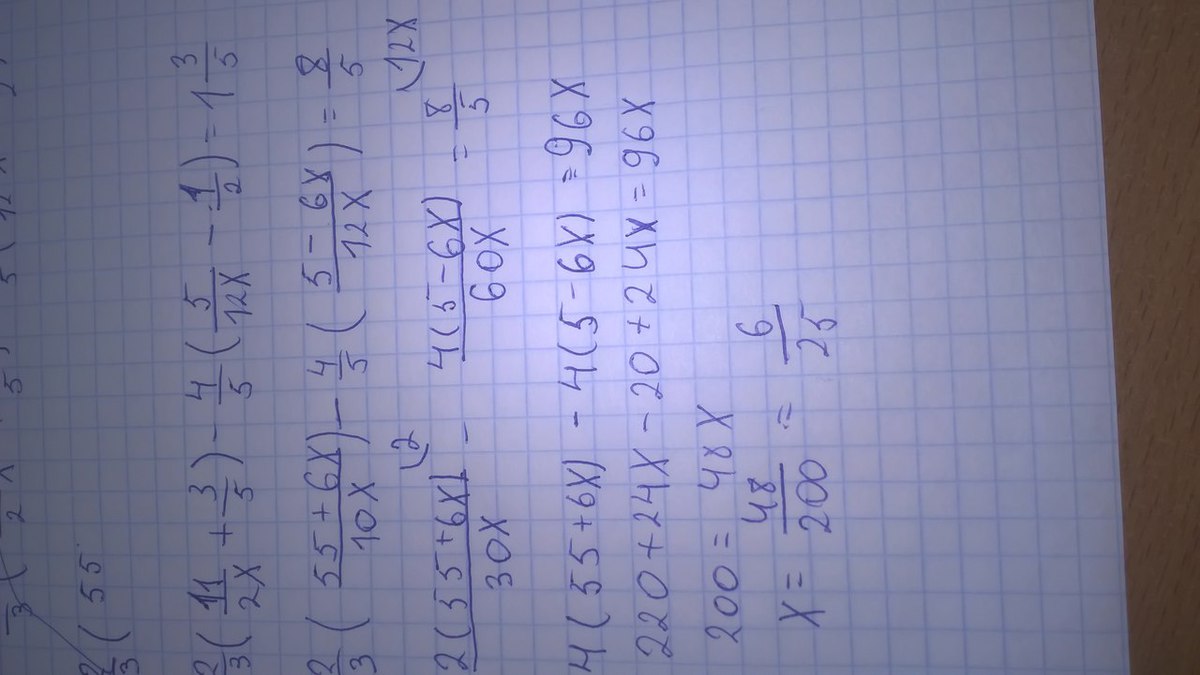 2/3 ( 55
2/3 ( 11/2X + 3/5 ) - 4/5 ( 5/12X - 1/2 ) = 1 3/5
2/3 ( 55 + 6X / 10X ) - 4/5 ( 5 - 6X / 12X ) = 8/5
2(55+6X)/30X - 4(5-6X)/60X = 8/5
4(55+6X) - 4(5-6X) = 96X
220+24X - 20+24X = 96X
200 = 48X
X = 48/200 = 6/25